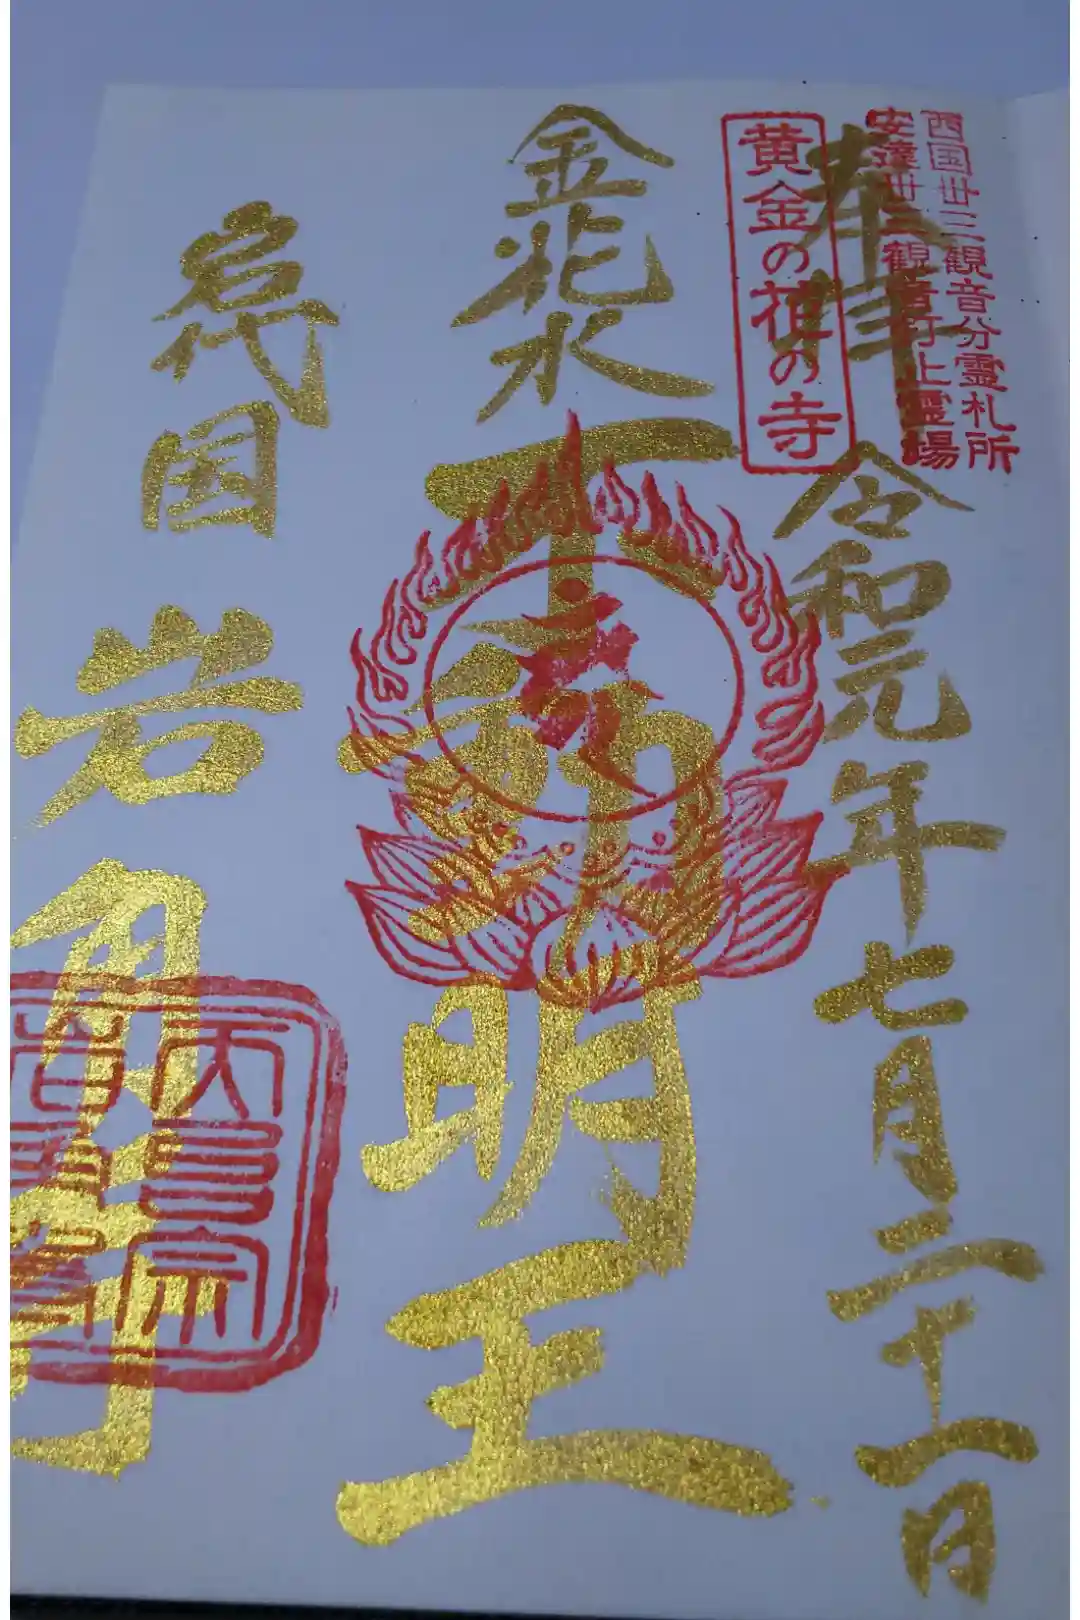 西国卅三観音分霊札所
安達卅三観音打止霊場
奉拝 令和元年七月二十一日
黄金の花の寺
金花水 不動明王
岩代国 岩角寺
天台宗